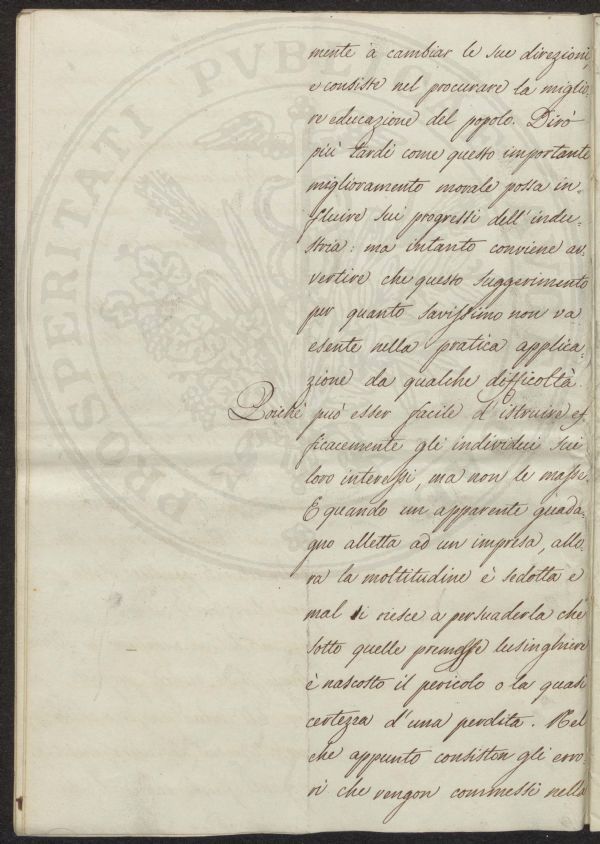 mente a cambiar le sue direzioni,
e consiste nel procurare la miglio
re educazione del popolo. Dirò
più tardi come questo importante
miglioramento morale possa in=
fluire sui progressi dell'indu=
stria: ma intanto conviene av=
vertire che questo suggerimento
per quanto savissimo non va
esente nella pratica applica=
zione da qualche difficoltà.
Poiché può esser facile d'istruire ef
ficacemente gli individui sui
loro interessi, ma non le masse.
E quando un apparente guada=
gno alletta ad un impresa, allo=
ra la moltitudine è sedotta e
mal si riesce a persuaderla che
sotto quelle premesse lusinghiere
è nascosto il pericolo o la quasi
certezza d'una perdita. Nel
che appunto consiston gli erro=
ri che vengon commessi nella
PROSPERITATI PVBL